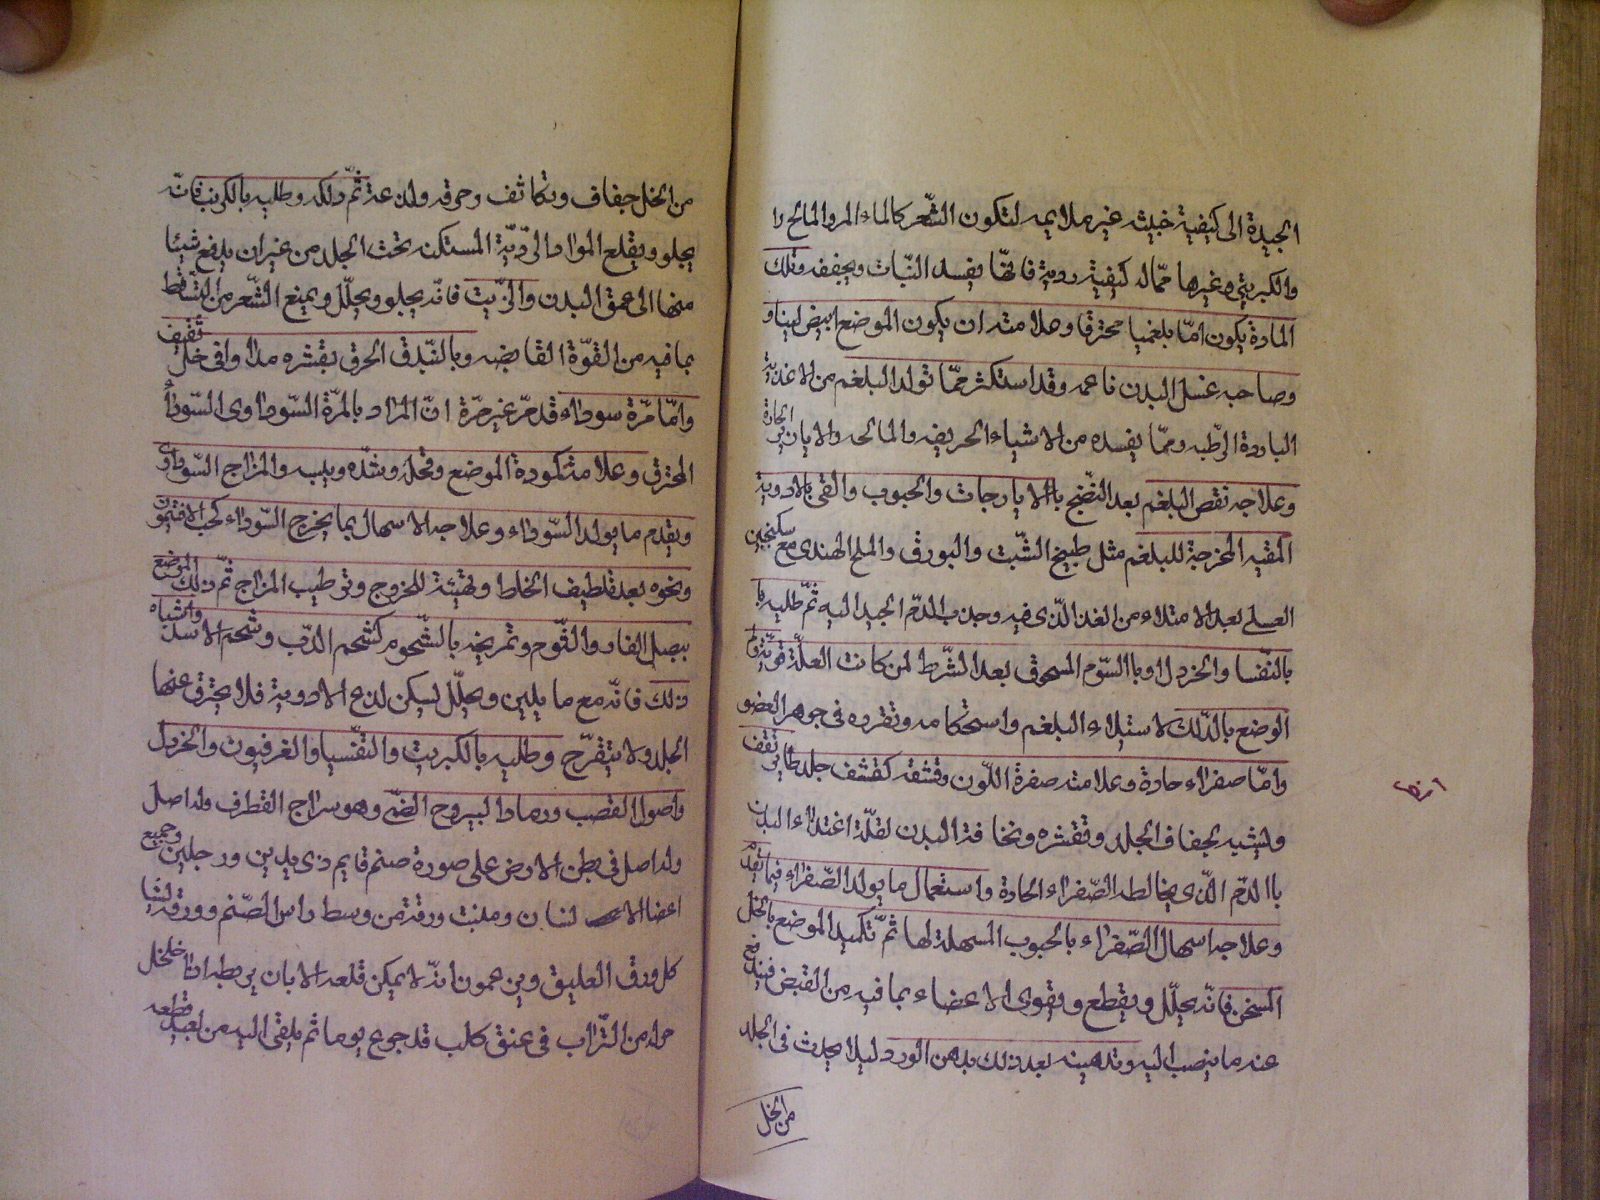 الجيدة الى كيفية خبيثه غير ملايمه لتكون الشّعر كالماء المر والمالح
والكبريتي وغيرها ممّا له كيفية رديّة فانّها يفسد النّبات ويجففه وتلك
المادة يكون امّا بلغميا محترقا وعلامته ان يكون الموضع ابيض لينا و
وصاحبه غسل البدن ناعمه وقد استكثر ممّا تولد البلغم من الاغذية
الباردة الرّطبه وممّا يفسده من الاشياء الحريفه والمالحه والابازير الحادة
وعلاجه نقص البلغم بعد النّضج بالايارجات والحبوب والقى بالادوية
المقيه المخرجة للبلغم مثل طبيخ الشّبت والبورق والملح الهندى مع سكنجبين
العسلي بعد الامتلاء من الغذ الّذى فيه وجذب الدّم الجيد اليه ثمّ طليه با
بالنّفسا والخردل او باالسّوم المسحوق بعد الشّرط لمن كانت العلّة قويّة وا
الوضع بالدّلك لاستيلاء البلغم واستحكامه وتفرده فى جوهر العضو
وامّا صفراء حادة وعلامته صفرة اللّون وقشفه كقشف جلد طاير نقف
وليشبه لجفاف الجلد وتقشره ونخافة البدن لقلّة اغتذاء البدن
باالدّم الّذى يخالطه الصّفراء الحادة واستعمال ما يولد الصّفراء فيما تقدّم
وعلاجه اسهال الصّفراء بالحبوب المسهلة لها ثمّ تكميد الموضع بالخل
المسخن فانّه يحلّل ويقطع ويقوى الاعضاء بما فيه من القبض فيندفع
عنه ما ينصب اليه وتدهينه بعد ذلك بدهن الورد ليلا يحدث فى الجلد
من الخل
من الخل جفاف وتكاثف وحرقه ولذعة ثمّ دلكه وطليه بالكرنب فانّه
يجلو ويقلع المواد الرّديّة المستكنه تحت الجلد من غير ان يدفع شيئا
منها الى عمق البدن والزّيت فانّه يجلو ويحلّل ويمنع الشّعر من التساقط
بما فيه من القوّة القابضه وبالبّندق الحرق بقشره مدا وافى خل ثقيف
وامّا مرّة سوداء قد مرّ غير مرّة انّ المراد بالمرّة السّوداوى السّوداء
المحترق وعلامته كمودة الموضع وقحله وشدّه ويبسه والمزاج السّوداوى
وتقدم ما يولد السّوداء وعلاجه الاسهال بما يخرج السّوداء كحب الافتيمون
ونحوه بعد تلطيف الخلط وتهيئة للخروج وترطيب المزاج ثمّ دلك الموضع
ببصل الفار والثّوم وتمريخه بالشّحوم كشحم الدّب وشحم الاسد واشباه
ذلك فانّه مع ما يلين ويحلّل ليسكن لذع الادوية فلا يحترق عنها
الجلد ولا يتقرّح وطليه بالكبريت والثفّسيا والفرفيون والخردل
واصول القصب ورماد البيروح الصّنمى وهو سراج القطرف وله اصل
وله اصل فى بطن الارض على صورة صنم قايم ذى يدين ورجلين وجميع
اعضا الانسان ومنبت ورقة من وسط راس الصّنم وورقه
كل ورق العليق ويزعمون انّه لا يمكن قلعه الا بان يربط اذا خلخل
حوله من التّراب فى عنق كلب قد جوع يوما ثم يلقى اليه من بعيد قطعه